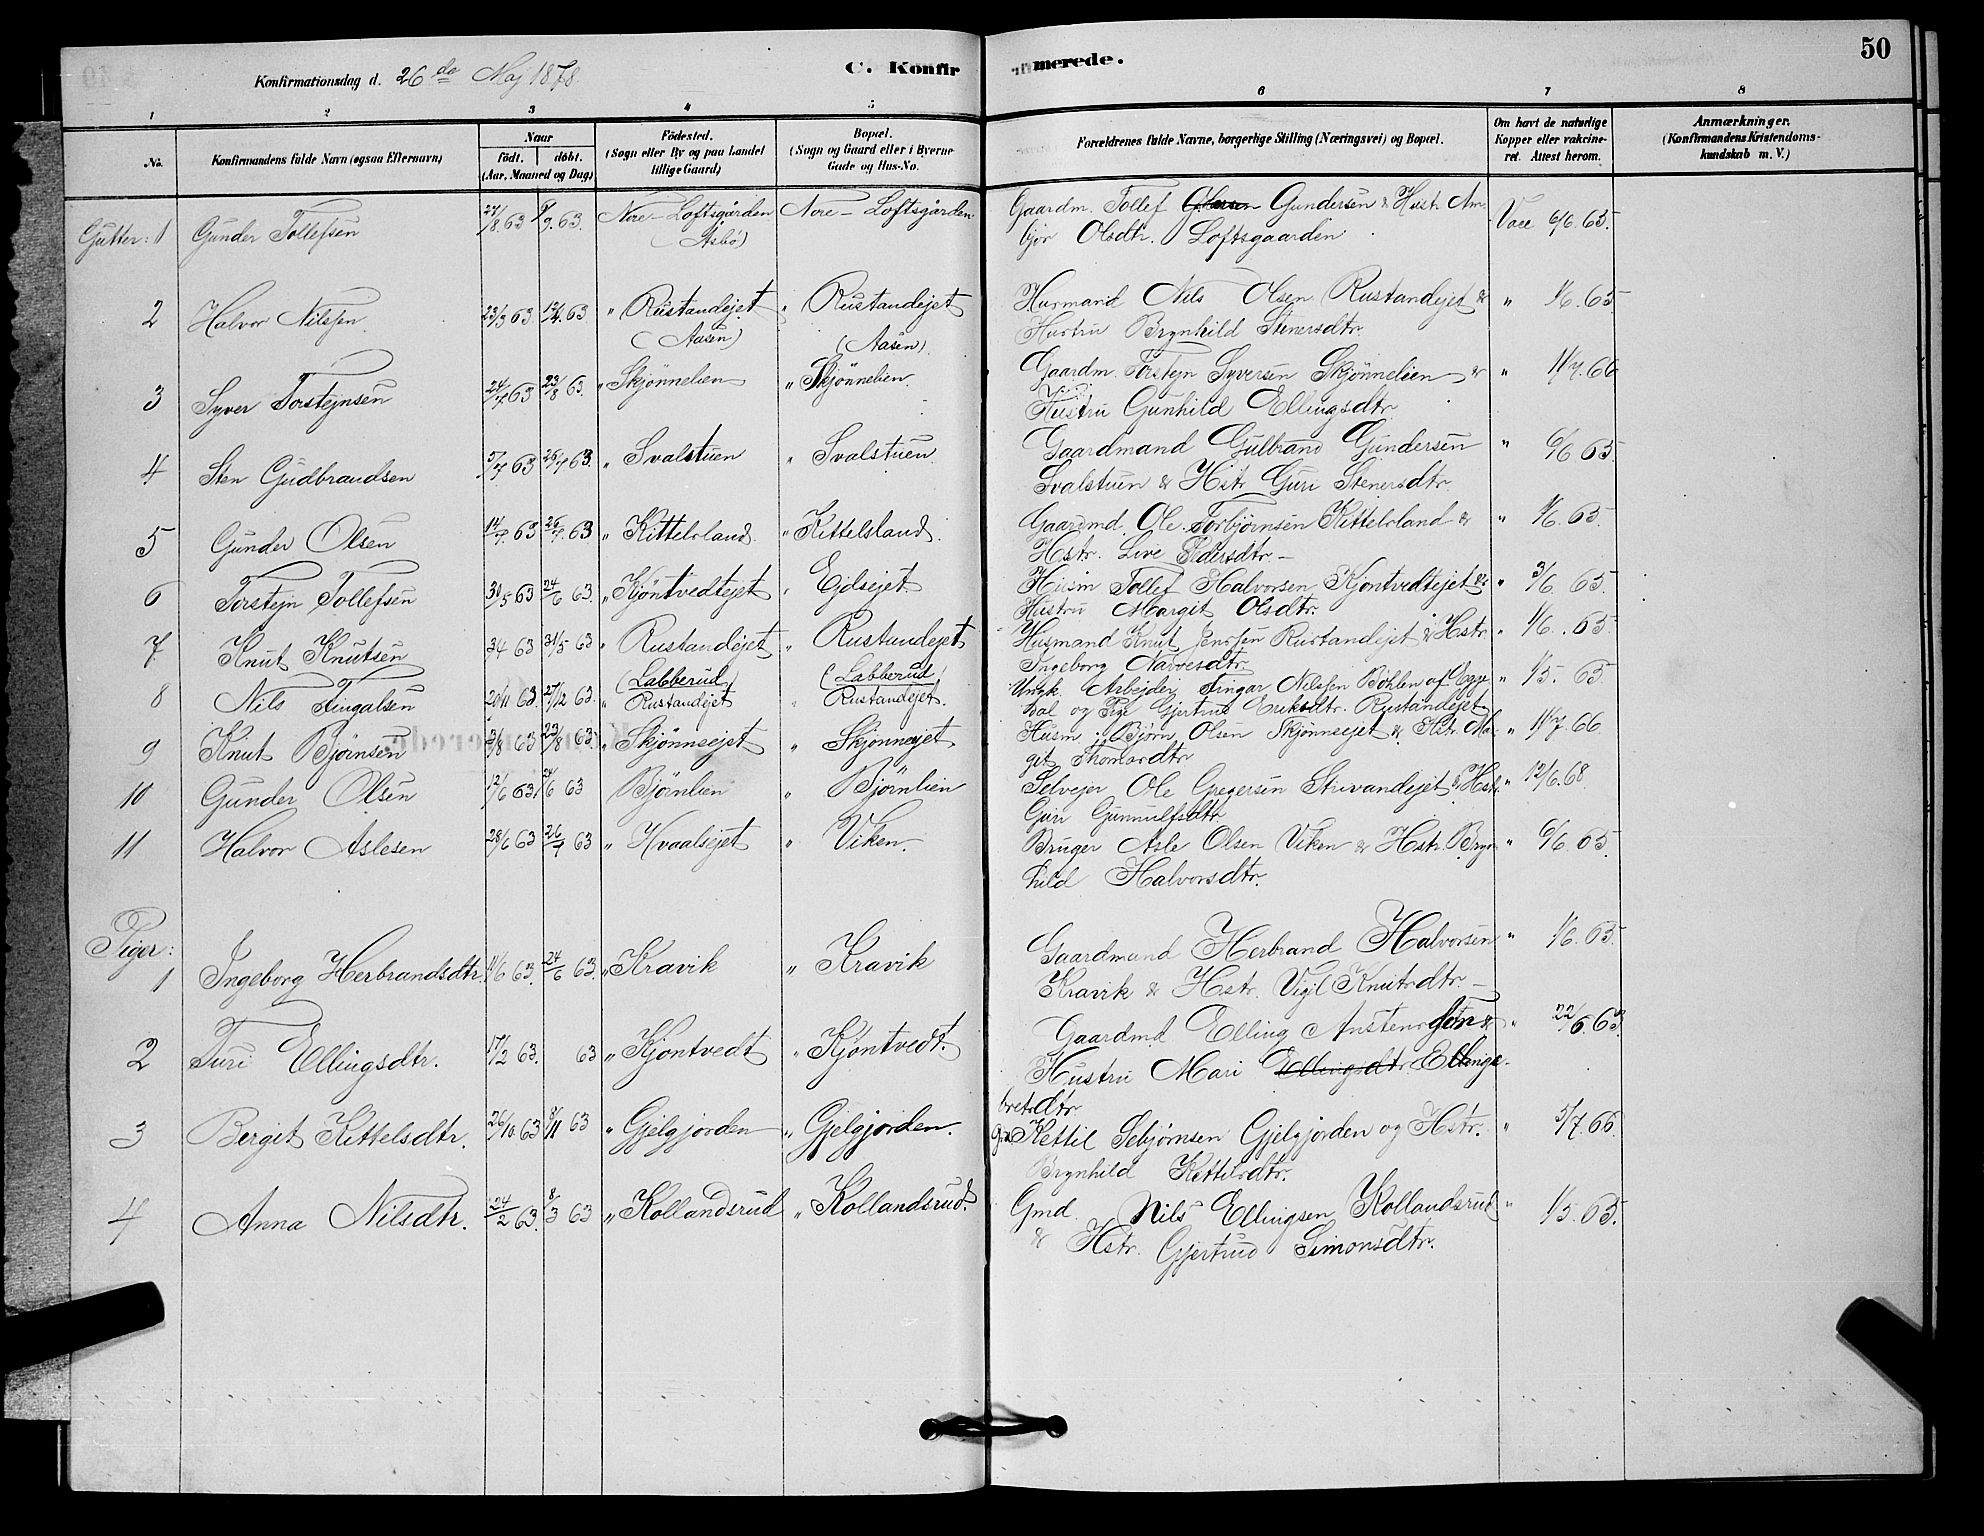 50
Konfirmationsdag d. 26de Maj 1878.
C. Konfirmerede.
1 2 3 4 5 6 7 8
No.
Konfirmandens fulde Navn (ogsaa Efternavn)
Naar
født. døbt.
(Aar, Maaned og Dag)
Fødested.
(Sogn eller By og paa Landet
tillige Gaard)
Bopæl.
(Sogn og Gaard eller i Byerne
Gade og Hus-No.
Forældrenes fulde Navne, borgerlige Stilling (Næringsvei) og Bopæl.
Om havt de naturlige
Kopper eller vakcine-
ret. Attest herom.
Anmærkninger.
(Konfirmandens Kristendoms-
kundskab m. V.)
Gutter: 1 Gunder Tollefsen 27/8 63 9. 63. Nore - Loftsgården (Asbö) Nore - Loftsgården Gaardm. Tollef Gundersen & Hustr. Am-
bjør Olsdtr. Loftsgaarden. Vacc 6/6. 65.
2 Halvor Nilssen 23/3 63 12/4. 63 " Rustandejet (Aasen) " Rustandejet (Aasen) Husmand Nils Olsen Rustandejet &
Hustru Brynhild Stenersdtr. " 1/6. 65
3 Syver Torstejnsen 24/7 63 23/8 63. " Skjönnelien " Skjönnelien. Gaardm. Torstejn Syversen Skjönnelien &
Hustru Gunhild Ellingsdtr. " 11/7. 66
4 Sten Gudbrandsen 5/7 63 26/7 63. " Svalstuen " Svalstuen Gaardmand Gulbrand Gundersen
Svalstuen & Hstr Guri Stenersdtr. " 6/6 65.
5 Gunder Olsen 14/7. 63 26/7. 63 " Kittelsland. " Kittelsland. Gaardmd. Ole Torbjørnsen Kittelsland &
Hstr. Live Pedersdtr. - " 1/6. 65.
6 Torstejn Tollefsen 30/5 63 24/6 63. " Kjöntvedtejet " Ejdsejet. Husm Tollef Halvorsen Kjontvedtejet &
Hustru Margit Olsdtr. " 3/6. 65.
7. Knut Knutsen 3/4 63 31/5 63 " Rustandejet (Labberud) " Rustandejet (Labberud) Husmand Knut Jenssen Rustandejet & Hstr.
Ingeborg Narvesdtr. " 1/6. 65.
8 Nils Fingalsen 20/11 63. 27/12 63. " Rustandejet " Rustandejet. Ungk. Arbejder Fingar Nilssen Böhlen af Egge-
dal og Pige Gjertrud Eriksdtr. Rustandejet " 1/5. 65.
9 Knut Bjørnsen 3/8 63 23/8 63 " Skjönnsejet " Skjönnejet Husm Bjørn Olsen Skjönnsejet & Hstr. Mar-
git Thomasdtr " 11/7 66.
10 Gunder Olsen 12/6 63. 24/6 63 Bjørnlien " Bjørnlien Selvejer Ole Gregersen Strivandejet & Hstr.
Guri Gunnulfsdtr " 12/6. 68.
11 Halvor Aslesen 28/6 63 26/7 63 " Hvaalsejet " Viken. Bruger Asle Olsen Viken & Hstr. Bryn-
hild Halvorsdtr. " 6/6. 65.
Piger:
1 Ingeborg Herbrandsdtr. 11/6 63. 24/6 63. " Kravik " Kravik Gaardmand Herbrand Halvorsen
Kravik & Hstr. Vigil Knutsdtr. - " 1/6. 65.
2 Turi Ellingsdtr. 17/2 63. 63 " Kjöntvedt " Kjöntvedt. Gaardmd Elling Anstensen &
Hustru Mari Ellingsdtr. Ellenge-
bretsdtr. " 22/6. 65
3 Bergit Kittelsdtr. 26/10 63 8/11 63 " Gjelgjorden " Gjelgjorden. Kettil Sebjørnsen Gjelgjorden og Hstr.
Brynhild Kettilsdtr. " 5/7. 66.
4 Anna Nilsdtr. 24/2 63. 8/3 63 " Kollandsrud " Kollandsrud. Gmd. Nils Ellingsen Kollandsrud
& Hstr. Gjertrud Simonsdtr. " 1/5. 65.